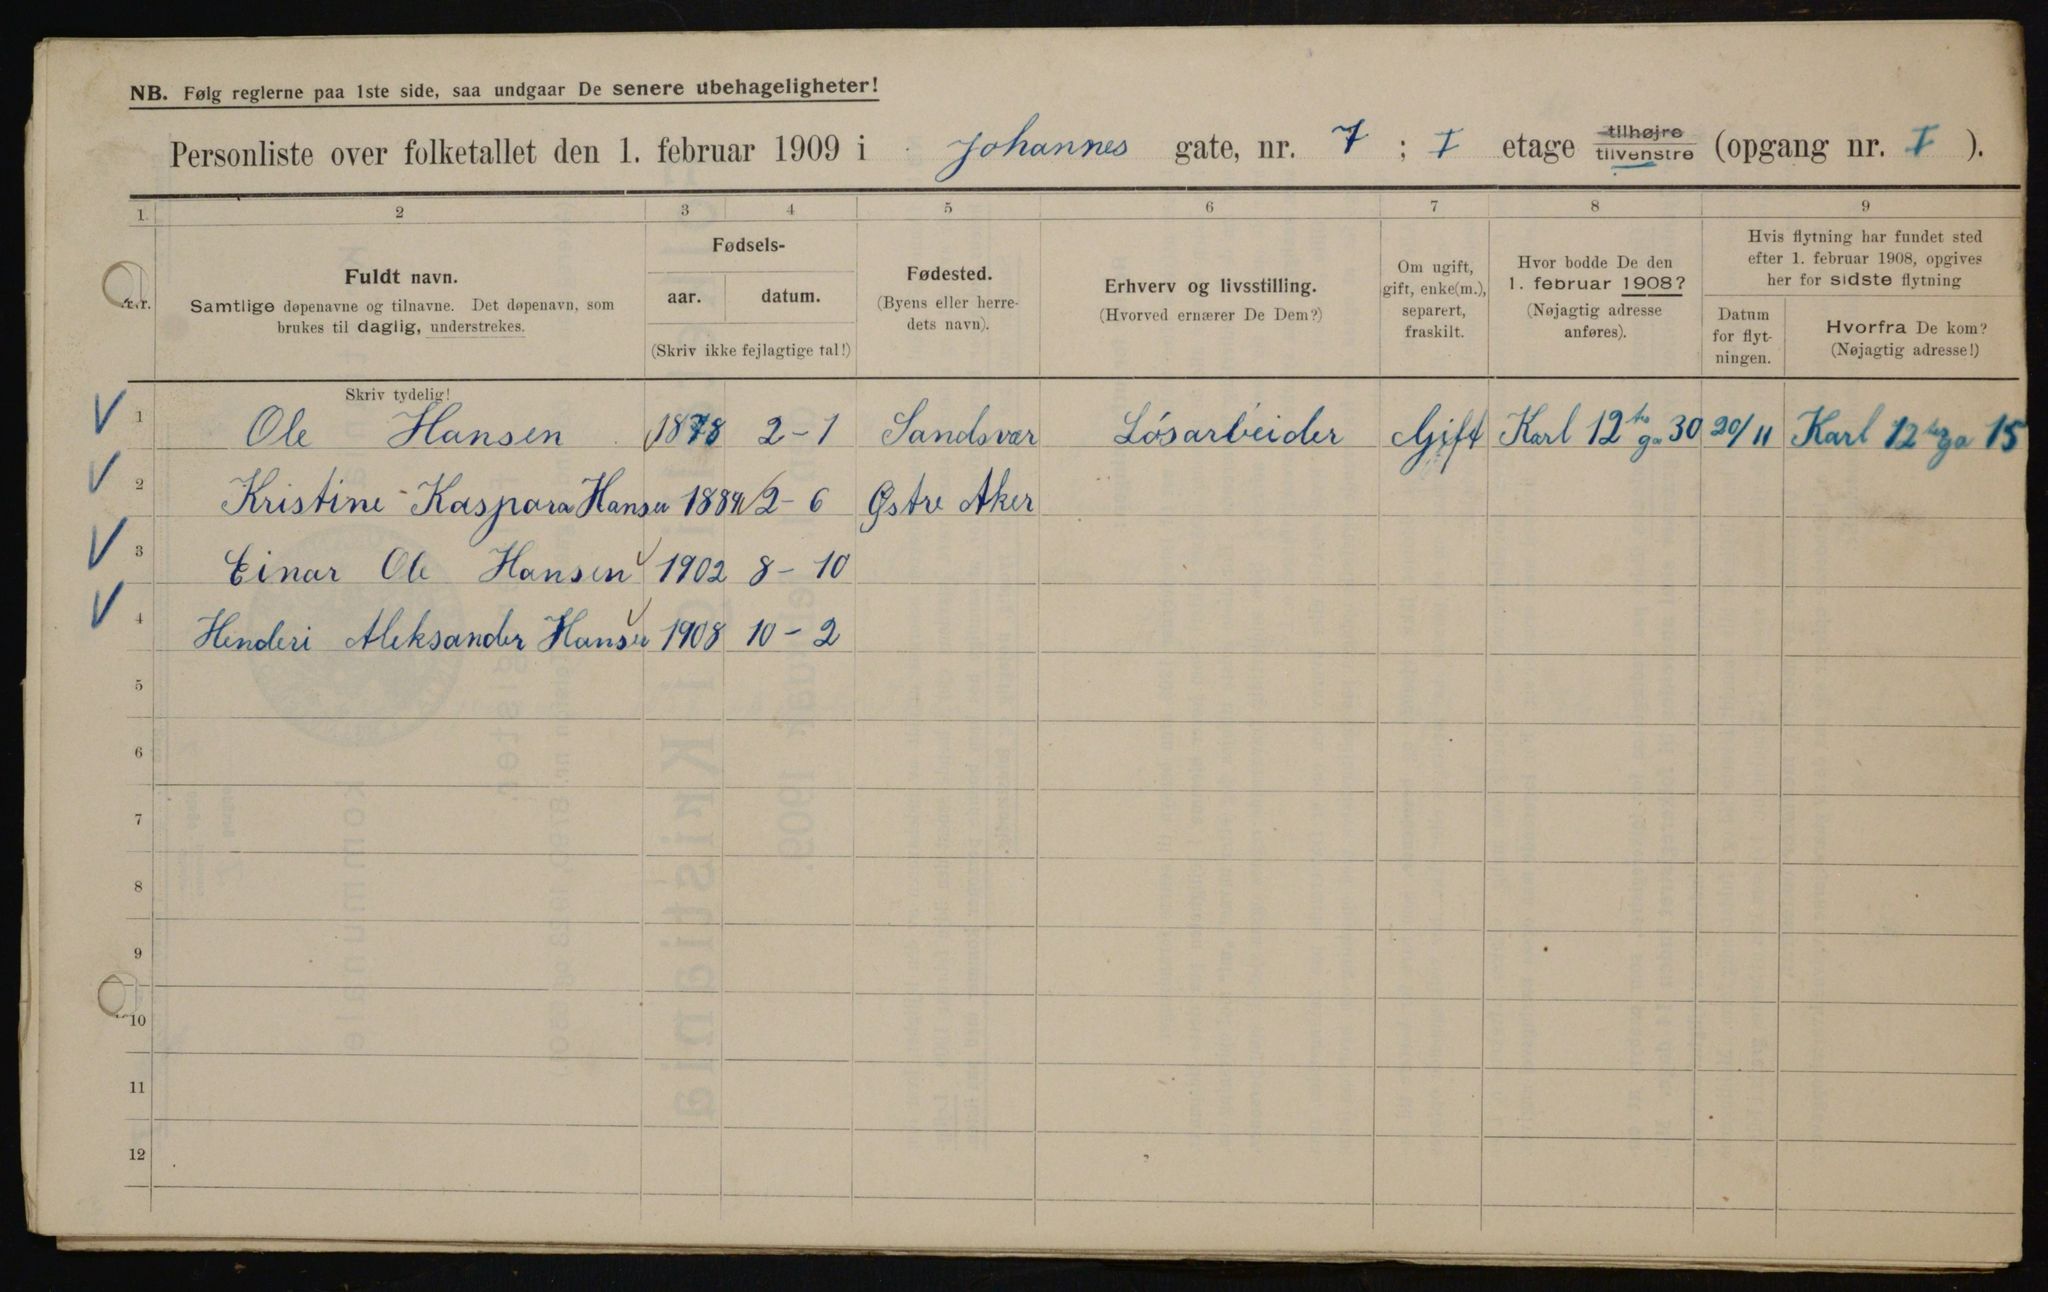 NB. Følg reglerne paa 1ste side, saa undgaar De senere ubehageligheter!
Personliste over folketallet den 1. februar 1909 i Johannes gate, nr. 7 ; I etage tilhøjre tilvenstre (opgang nr. I ).
1. 2 3 4 5 6 7 8 9
Nr. Fuldt navn. Samtlige døpenavne og tilnavne. Det døpenavn, som brukes til daglig, understrekes.
Fødsels-
aar. datum.
(Skriv ikke fejlagtige tal!)
Fødested.
(Byens eller herre-
dets navn).
Erhverv og livsstilling.
(Hvorved ernærer De Dem?)
Om ugift,
gift, enke(m.),
separert,
fraskilt.
Hvor bodde De den
1. februar 1908?
(Nøjagtig adresse
anføres).
Hvis flytning har fundet sted
efter 1. februar 1908, opgives
her for sidste flytning
Datum
for flyt-
ningen.
Hvorfra De kom?
(Nøjagtig adresse!)
Skriv tydelig!
1 Ole Hansen 1878 2-1 Sandsvær Løsarbeider Gift Karl 12te ga 30 20/11 Karl 12te ga 15
2 Kristine Kaspara Hansen 2-6 Østre Aker
3 Einar Ole Hansen 1902 8-10
4 Henderi Aleksander Hansen 1908 10-2
5
6
7
8
9
10
11
12